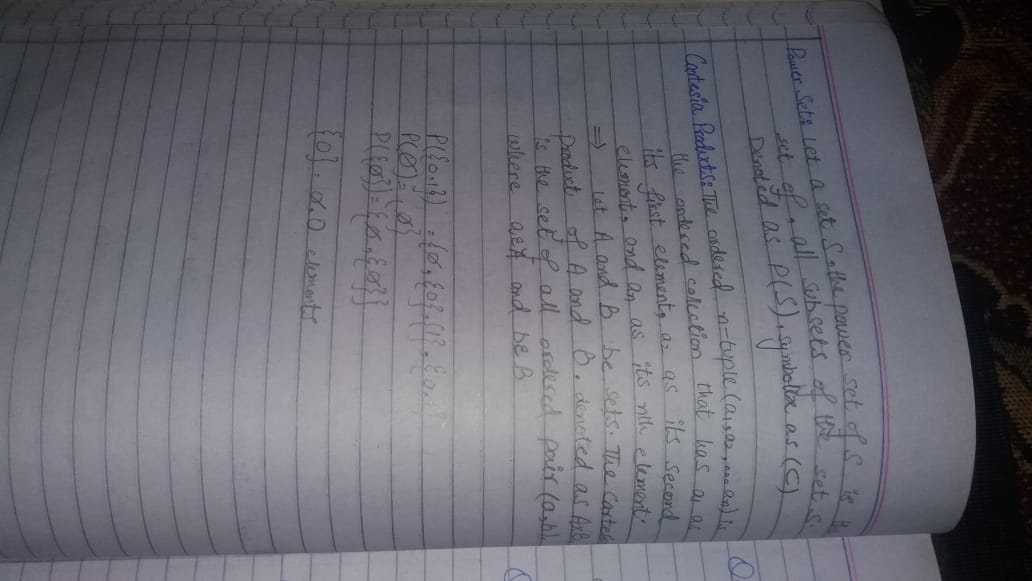 Power Set: Let a set S, the power set of S is the
set of, all subsets of the set S.
Denoted as P(S), symbolize as (C)
Cartesia Products: The ordered n-tuple (a₁, a₂, .... aₙ) is
the ordered colection that has a₁ as
its first element, a₂ as its second
element, and aₙ as its nth element.
⇒ Let A and B be sets. The Cartes
Product of A and B. denoted as AxB
is the set of all ordered pair (a,b)
where a∈A and b∈B
P({0,1}) = {∅, {0}, {1}, {0,1
P(∅) = {∅}
P({∅}) = {∅, {∅}}
{0} = ∅, 0 elements